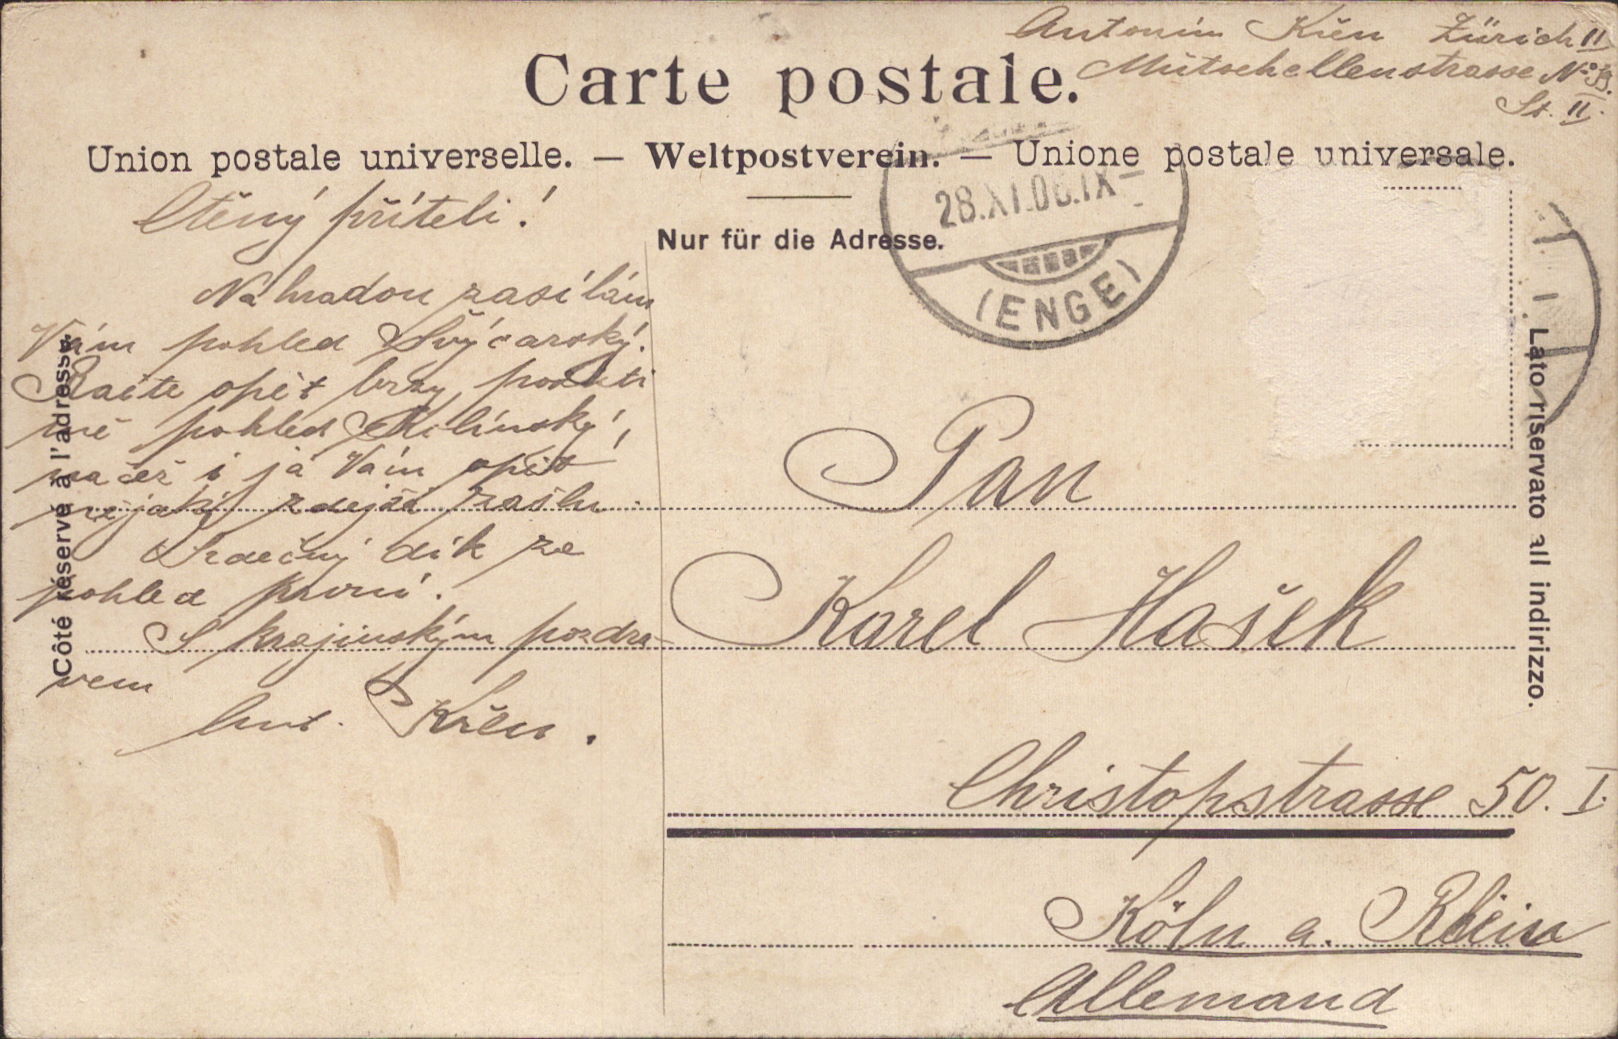 Antonín Křen Zürich II
Mutschellenstrasse No
St. II.
Carte postale.
Union postale universelle. — Weltpostverein. — Unione postale universale.
28.XI.06.IX
(ENGE)
Nur für die Adresse.
Côté réservé à l'adresse.
Lato riservato all indirizzo.
Ctěný příteli!
Náhradou zasílám
Vám pohled Švýcarský.
Račte opět brzy poslati
mě pohled Kolínský,
načež i já Vám opět
nějaký zdejší zašlu.
Srdečný dík za
pohled první.
S krajinským pozdra-
vem
Ant. Křen.
Pan
Karel Hašek
Christopstrasse 50. I.
Köln a. Rhein
Allemand